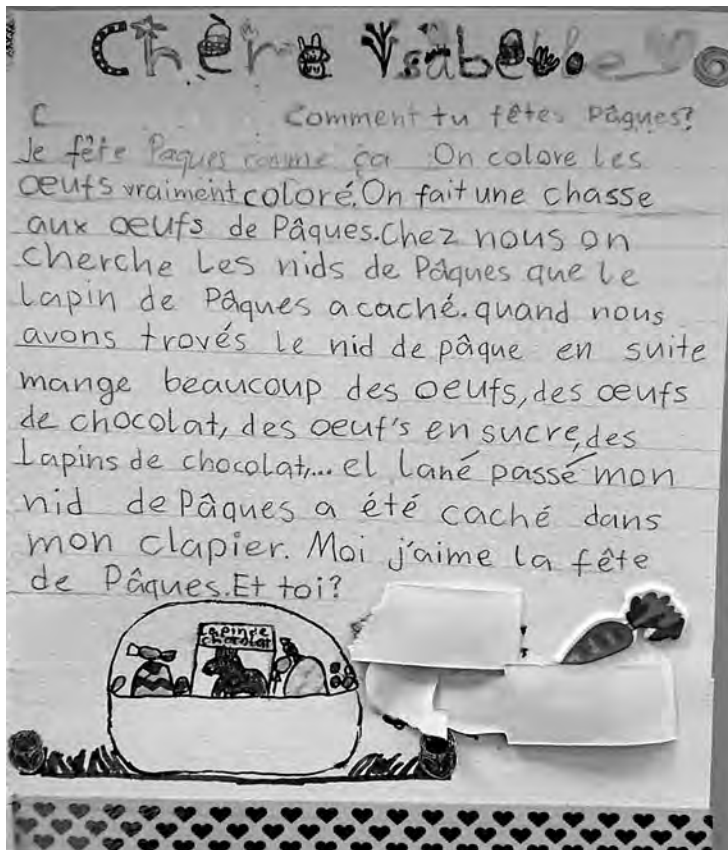 Chère Ysabelle
C Comment tu fêtes Pâques?
Je fête Paques comme ça On colore les
oeufs vraiment coloré. On fait une chasse
aux oeufs de Pâques. Chez nous on
cherche les nids de Pâques que le
Lapin de Pâques a caché. quand nous
avons trovés le nid de pâque en suite
mange beaucoup des oeufs, des oeufs
de chocolat, des oeuf's en sucre, des
Lapins de chocolat,... el lané passé mon
nid de Pâques a été caché dans
mon clapier. Moi j'aime la fête
de Pâques. Et toi?
Lapin de
chocolat